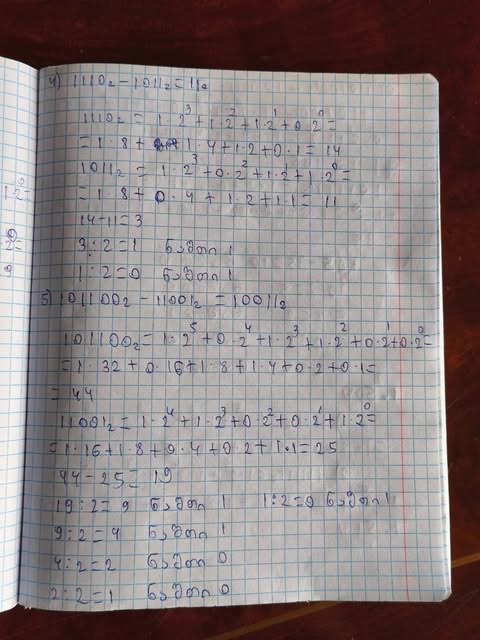 1·2⁰=
·2⁰=
9
4) 1110₂-1011₂=11₂
1110₂ = 1·2³+1·2²+1·2¹+0·2⁰=
=1·8+1·4+1·2+0·1=14
1011₂ = 1·2³+0·2²+1·2¹+1·2⁰=
=1·8+0·4+1·2+1·1=11
14-11=3
3:2=1 ნაშთი 1
1:2=0 ნაშთი 1
5) 101100₂ - 11001₂ = 10011₂
101100₂= 1·2⁵+0·2⁴+1·2³+1·2²+0·2¹+0·2⁰=
=1·32+0·16+1·8+1·4+0·2+0·1=
=44
11001₂= 1·2⁴+1·2³+0·2²+0·2¹+1·2⁰=
=1·16+1·8+0·4+0·2+1·1=25
44-25=19
19:2=9 ნაშთი 1 1:2=0 ნაშთი 1
9:2=4 ნაშთი 1
4:2=2 ნაშთი 0
2:2=1 ნაშთი 0